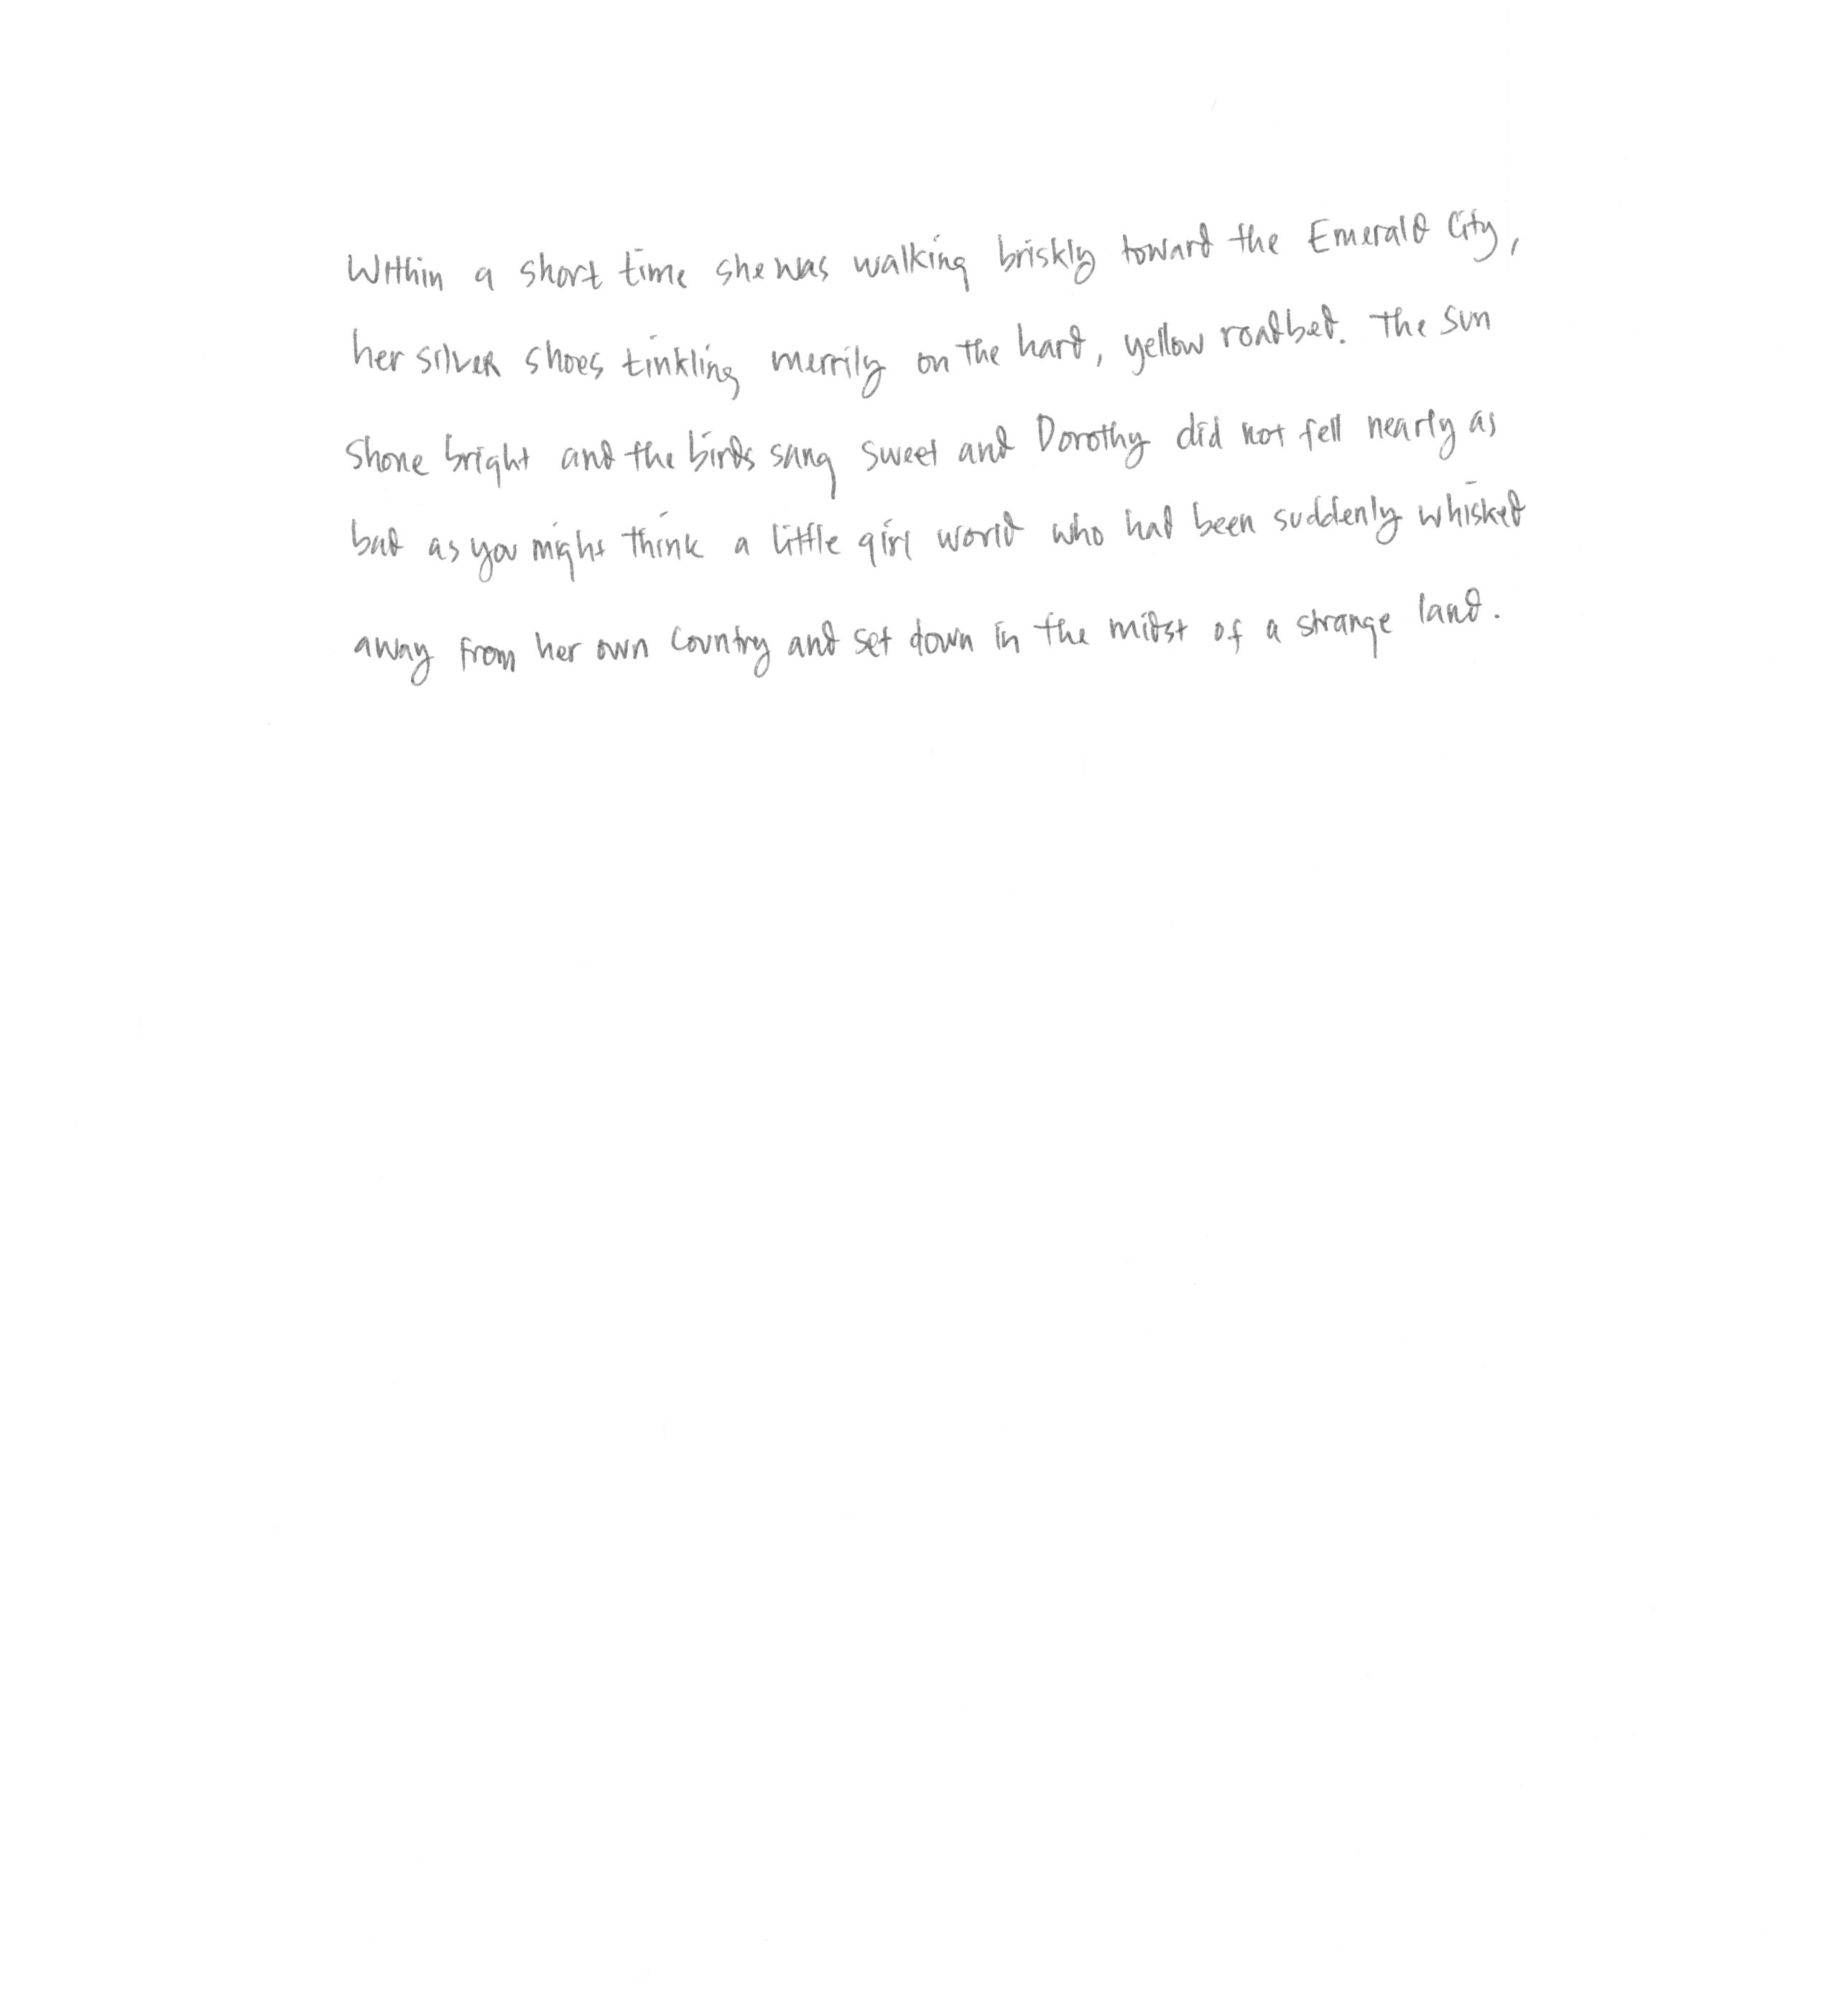 Within a short time she was walking briskly toward the Emerald City,
her silver shoes tinkling merrily on the hard, yellow roadbed. The sun
shone bright and the birds sang sweet and Dorothy did not fell nearly as
bad as you might think a little girl world who had been suddenly whisked
away from her own country and set down in the midst of a strange land.